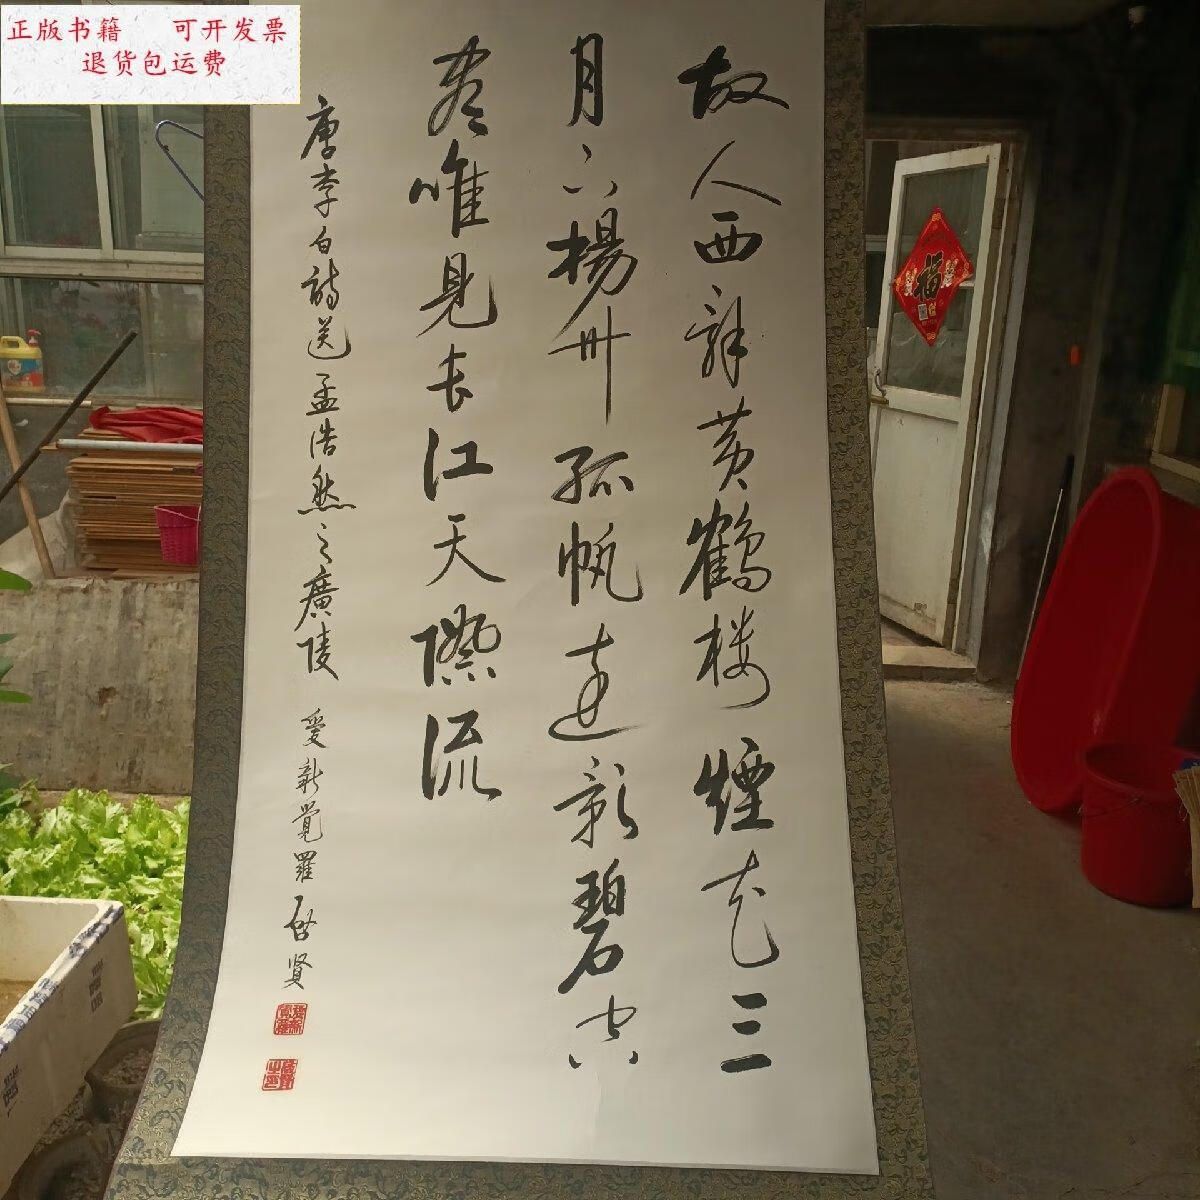 正版书籍 可开发票
退货包运费
故人西辞黄鶴楼煙花三
月下楊州孤帆远影碧空
尽唯見长江天際流
唐李白詩送孟浩然之廣陵 愛新覺羅启贤
福